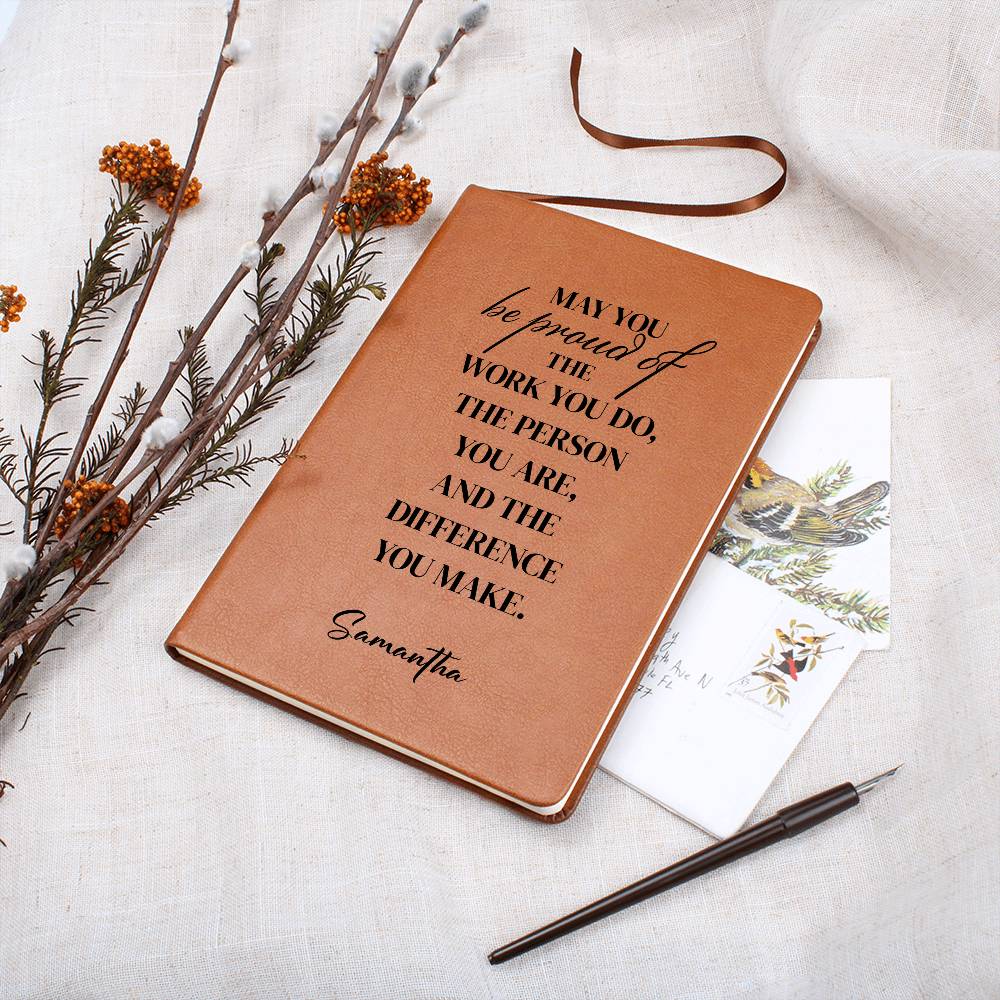 MAY YOU
be proud of
THE
WORK YOU DO,
THE PERSON
YOU ARE,
AND THE
DIFFERENCE
YOU MAKE.
Samantha
Ave N
FL
77